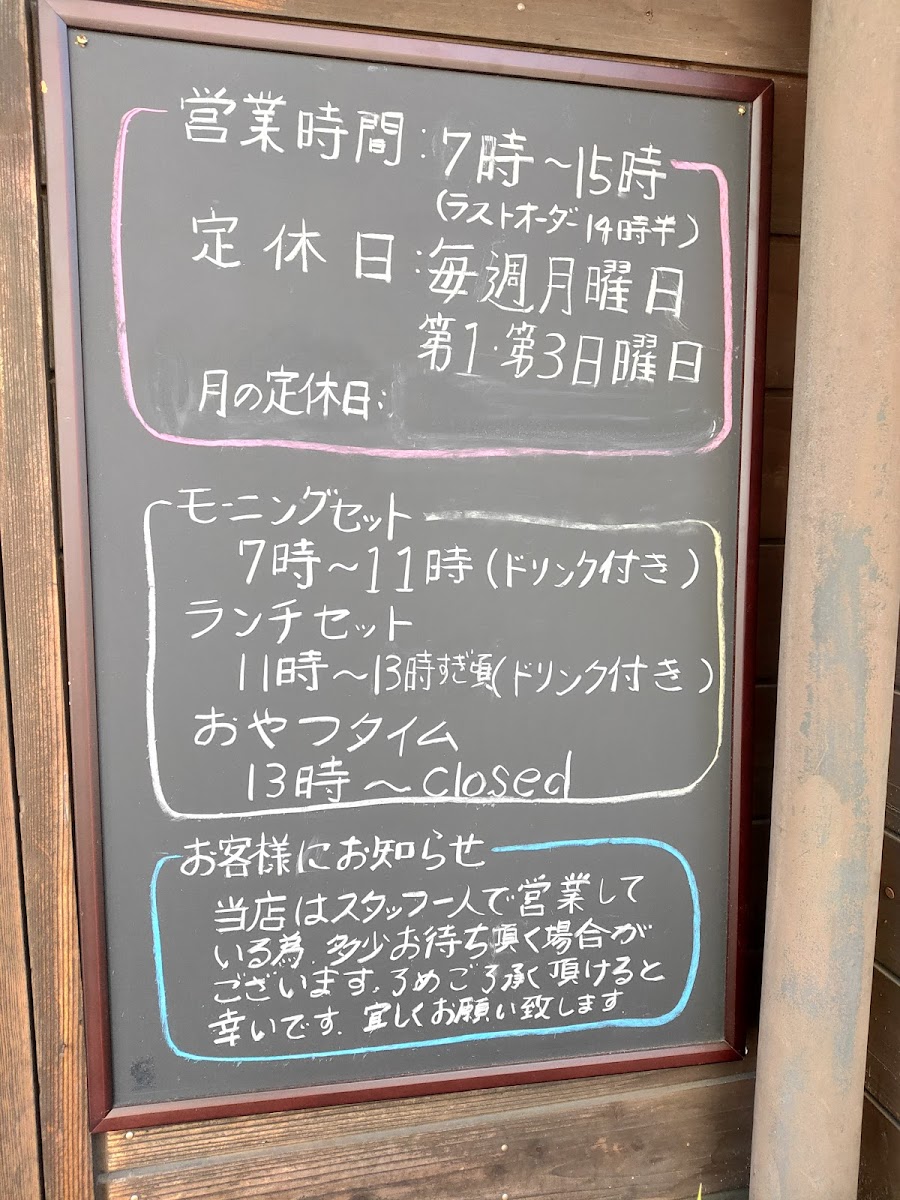 営業時間:7時~15時
(ラストオーダー14時半)
定休日:毎週月曜日
第1・第3日曜日
月の定休日:
モーニングセット
7時~11時(ドリンク付き)
ランチセット
11時~13時すぎ頃(ドリンク付き)
おやつタイム
13時~closed
お客様にお知らせ
当店はスタッフ一人で営業して
いる為、多少お待ち頂く場合が
ございます。予めご了承頂けると
幸いです。宜しくお願い致します